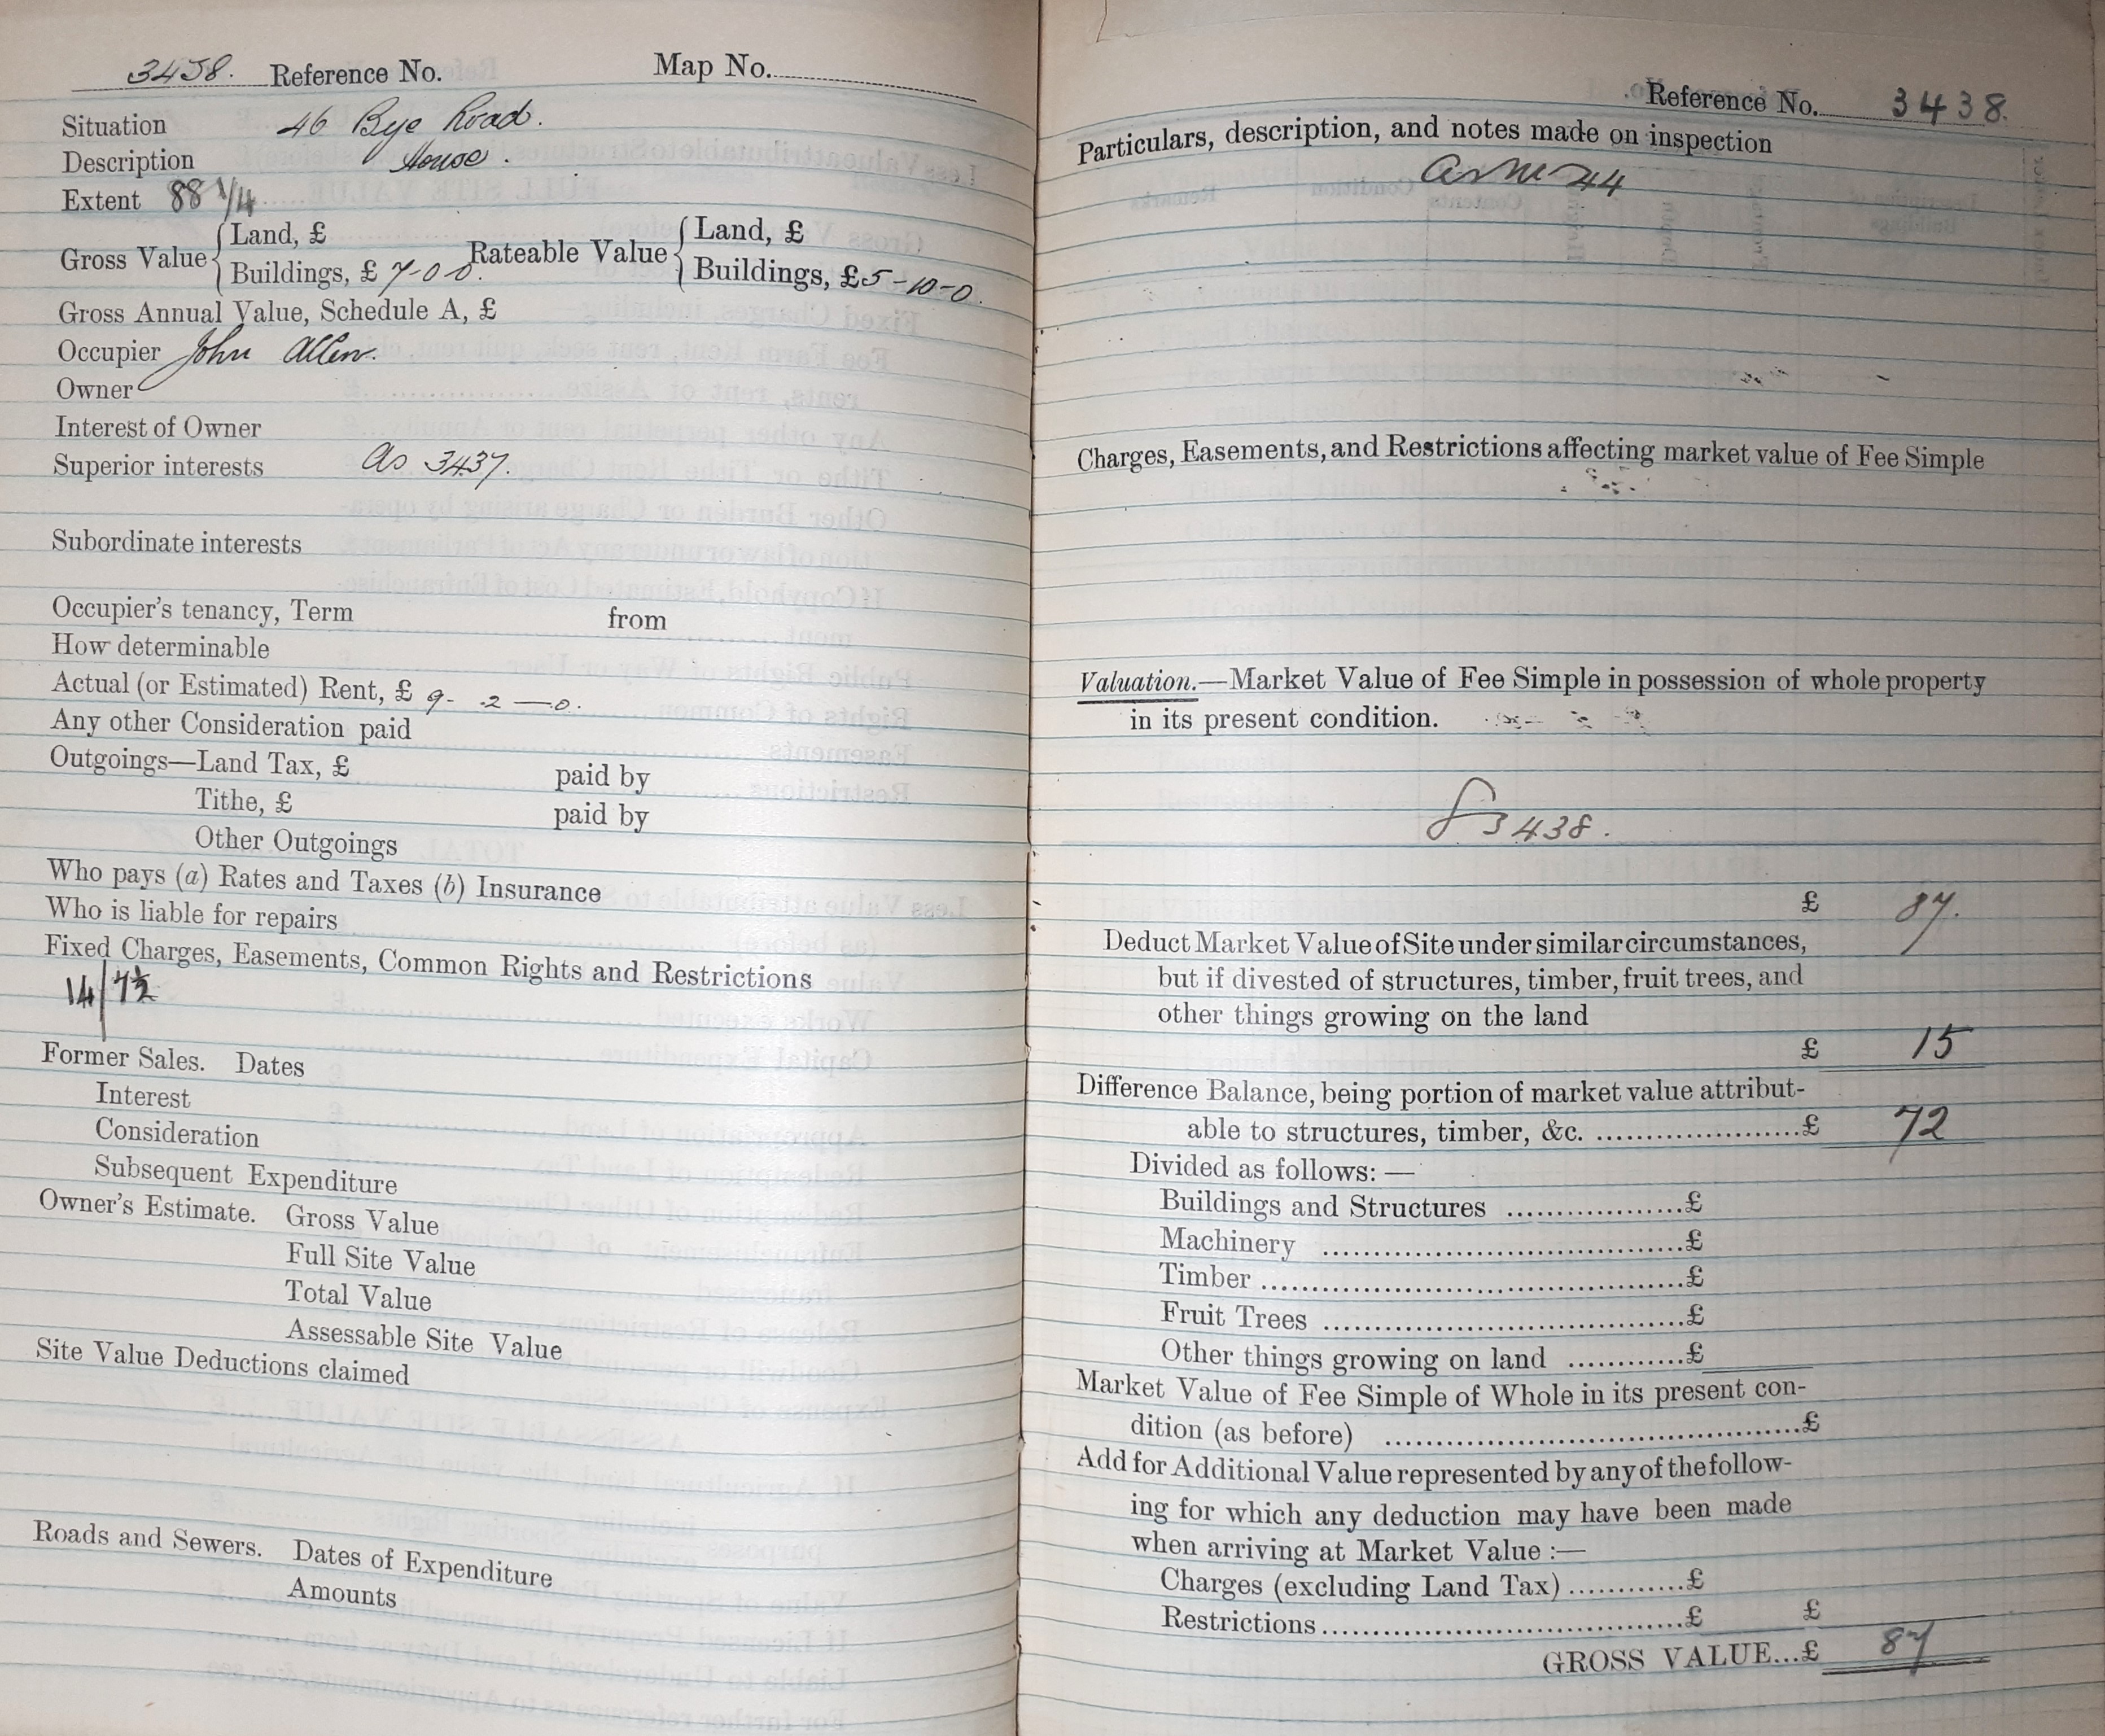 3438. Reference No. Map No.
Situation 46 Bye Road.
Description House.
Extent 88 1/4
Gross Value { Land, £ Rateable Value { Land, £
Buildings, £ 7-0-0. Buildings, £5-10-0.
Gross Annual Value, Schedule A, £
Occupier John Allen.
Owner
Interest of Owner
Superior interests As 3437.
Subordinate interests
Occupier's tenancy, Term from
How determinable
Actual (or Estimated) Rent, £ 9-2-0.
Any other Consideration paid
Outgoings—Land Tax, £ paid by
Tithe, £ paid by
Other Outgoings
Who pays (a) Rates and Taxes (b) Insurance
Who is liable for repairs
Fixed Charges, Easements, Common Rights and Restrictions
14/7½
Former Sales. Dates
Interest
Consideration
Subsequent Expenditure
Owner's Estimate. Gross Value
Full Site Value
Total Value
Assessable Site Value
Site Value Deductions claimed
Roads and Sewers. Dates of Expenditure
Amounts
Reference No. 3438.
Particulars, description, and notes made on inspection
44
Charges, Easements, and Restrictions affecting market value of Fee Simple
Valuation.—Market Value of Fee Simple in possession of whole property
in its present condition.
3438.
£ 87.
Deduct Market Value of Site under similar circumstances,
but if divested of structures, timber, fruit trees, and
other things growing on the land
£ 15
Difference Balance, being portion of market value attribut-
able to structures, timber, &c. ....................£ 72
Divided as follows: —
Buildings and Structures ..................£
Machinery .....................................£
Timber ..........................................£
Fruit Trees .....................................£
Other things growing on land ............£
Market Value of Fee Simple of Whole in its present con-
dition (as before) ..........................................£
Add for Additional Value represented by any of the follow-
ing for which any deduction may have been made
when arriving at Market Value :—
Charges (excluding Land Tax) ............£
Restrictions.....................................£ £
GROSS VALUE...£ 87